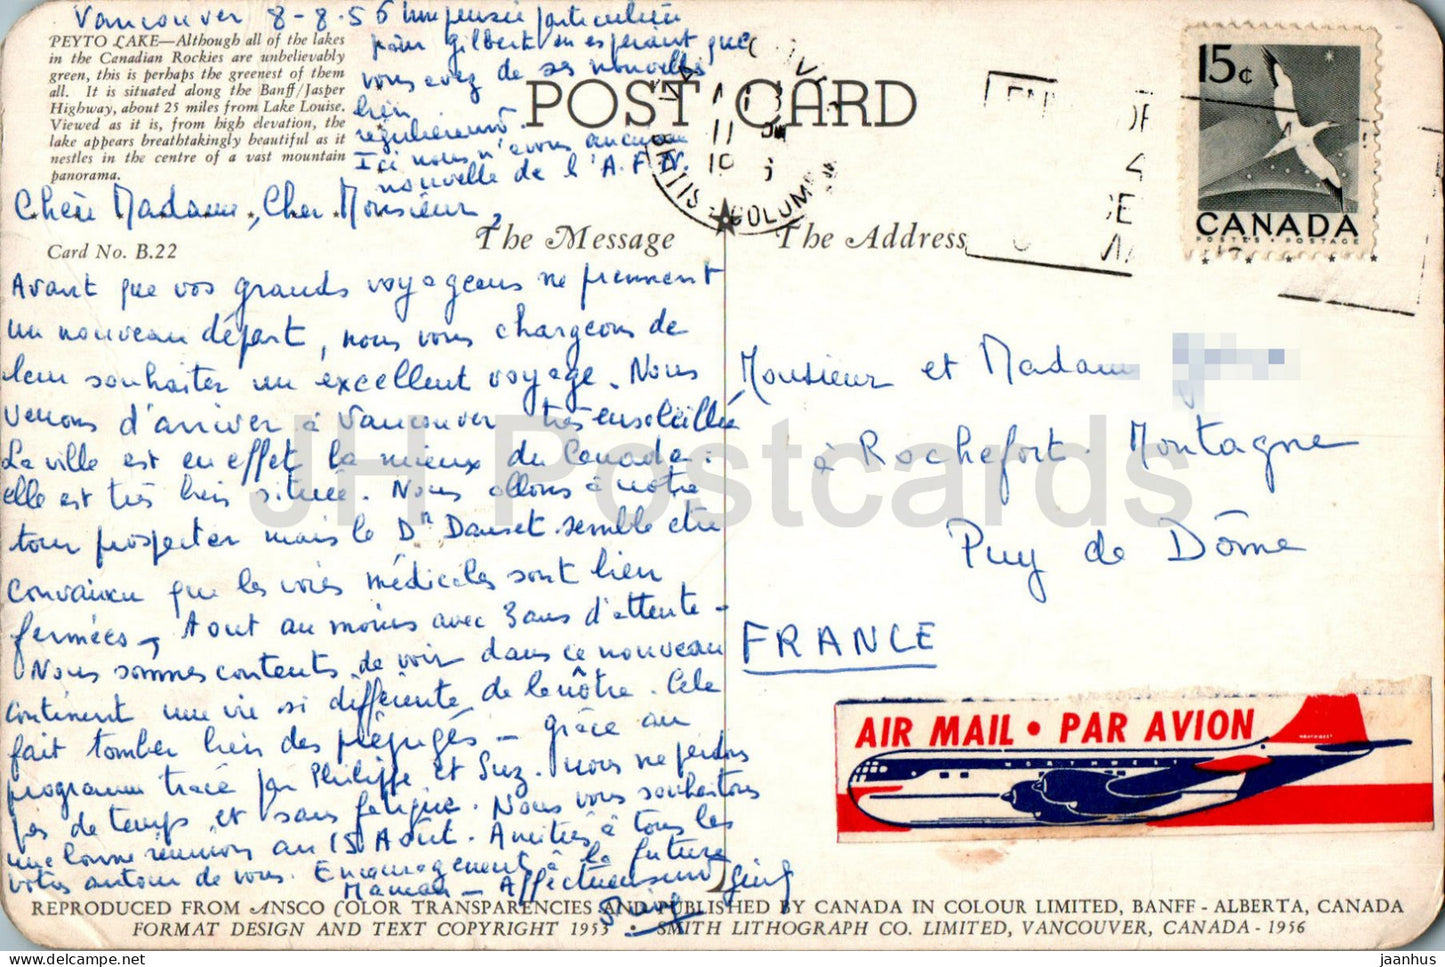 Vancouver 8-8.56
Une pensée particulière
pour Gilbert en espérant que
vous avez de ses nouvelles
bien
régulièrement.
Ici nous n'avons aucune
nouvelle de l'A.F.N.
PEYTO LAKE—Although all of the lakes
in the Canadian Rockies are unbelievably
green, this is perhaps the greenest of them
all. It is situated along the Banff/Jasper
Highway, about 25 miles from Lake Louise.
Viewed as it is, from high elevation, the
lake appears breathtakingly beautiful as it
nestles in the centre of a vast mountain
panorama.
POST CARD
15¢
CANADA
POSTES • POSTAGE
VANCOUVER
11
BRITISH COLUMBIA
Chère Madame, Cher Monsieur,
Card No. B.22
The Message
The Address
Avant que vos grands voyageurs ne prennent
un nouveau départ, nous vous chargeons de
leur souhaiter un excellent voyage. Nous
venons d'arriver à Vancouver très ensoleillé
La ville est en effet la mieux du Canada:
elle est très bien située. Nous allons à notre
tour prospecter mais le Dr Dauset semble être
convaincu que les voies médicales sont bien
fermées, Aout au moins avec 3 ans d'attente -
Nous sommes contents de voir dans ce nouveau
continent une vie si différente de la nôtre. Cela
fait tomber bien des préjugés - grâce au
programme tracé par Philippe et Suz. nous ne perdons
pas de temps et sans fatigue. Nous vous souhaitons
une bonne réunion au 15 Août. Amitiés à tous les
vôtres autour de vous. Encouragement à la future
Maman - Affectueusement
Monsieur et Madame
à Rochefort-Montagne
Puy de Dôme
FRANCE
AIR MAIL • PAR AVION
NORTHWEST
JH Postcards
REPRODUCED FROM ANSCO COLOR TRANSPARENCIES AND PUBLISHED BY CANADA IN COLOUR LIMITED, BANFF - ALBERTA, CANADA
FORMAT DESIGN AND TEXT COPYRIGHT 1953 • SMITH LITHOGRAPH CO. LIMITED, VANCOUVER, CANADA - 1956
jaanhus